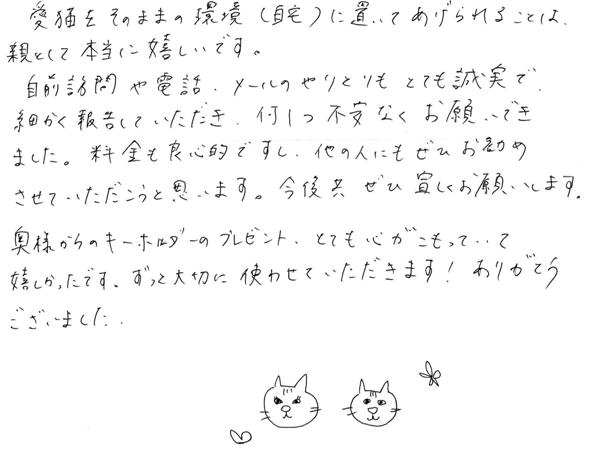 愛猫をそのままの環境(自宅)に置いてあげられることは、
親として本当に嬉しいです。
自前訪問や電話、メールのやりとりもとても誠実で、
細かく報告していただき、何1つ不安なくお願いでき
ました。料金も良心的ですし、他の人にもぜひお勧め
させていただこうと思います。今後共ぜひ宜しくお願いします。
奥様からのキーホルダーのプレゼント、とても心がこもっていて
嬉しかったです。ずっと大切に使わせていただきます!ありがとう
ございました.